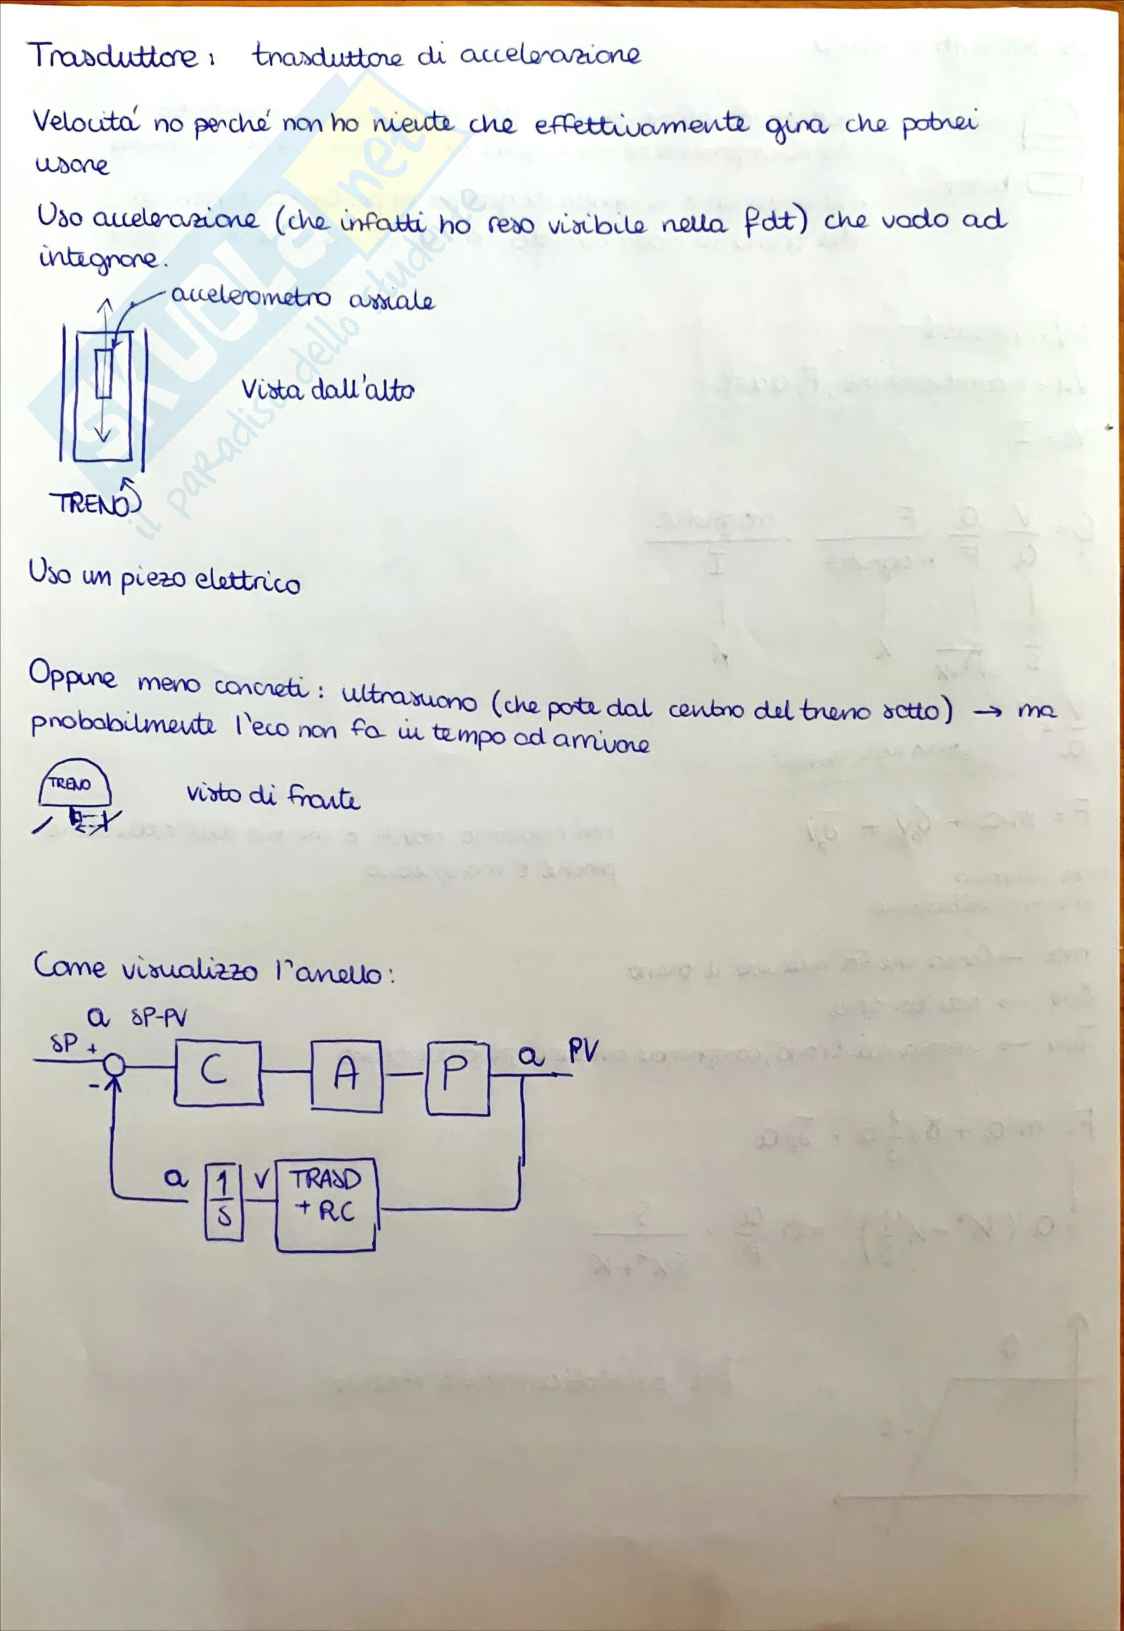 Trasduttore: trasduttore di accelerazione
Velocitá no perché non ho niente che effettivamente gira che potrei
usare
Uso accelerazione (che infatti ho reso visibile nella fdt) che vado ad
integrare.
accelerometro assiale
Vista dall'alto
TRENO
Uso un piezo elettrico
Oppure meno concreti: ultrasuono (che parte dal centro del treno sotto) → ma
probabilmente l'eco non fa in tempo ad arrivare
TRENO
visto di fronte
Come visualizzo l'anello:
a SP-PV
SP + - C A P a PV
a 1/S V TRASD
+ RC
SKUOLA.net
il paradiso dello studente